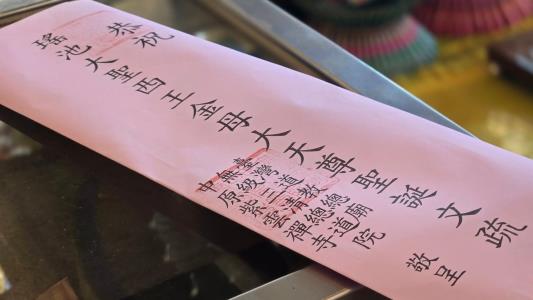 恭祝
瑤池大聖西王金母大天尊聖誕文疏
臺灣道教總廟
無極三清總道院
中原紫雲禪寺
敬呈